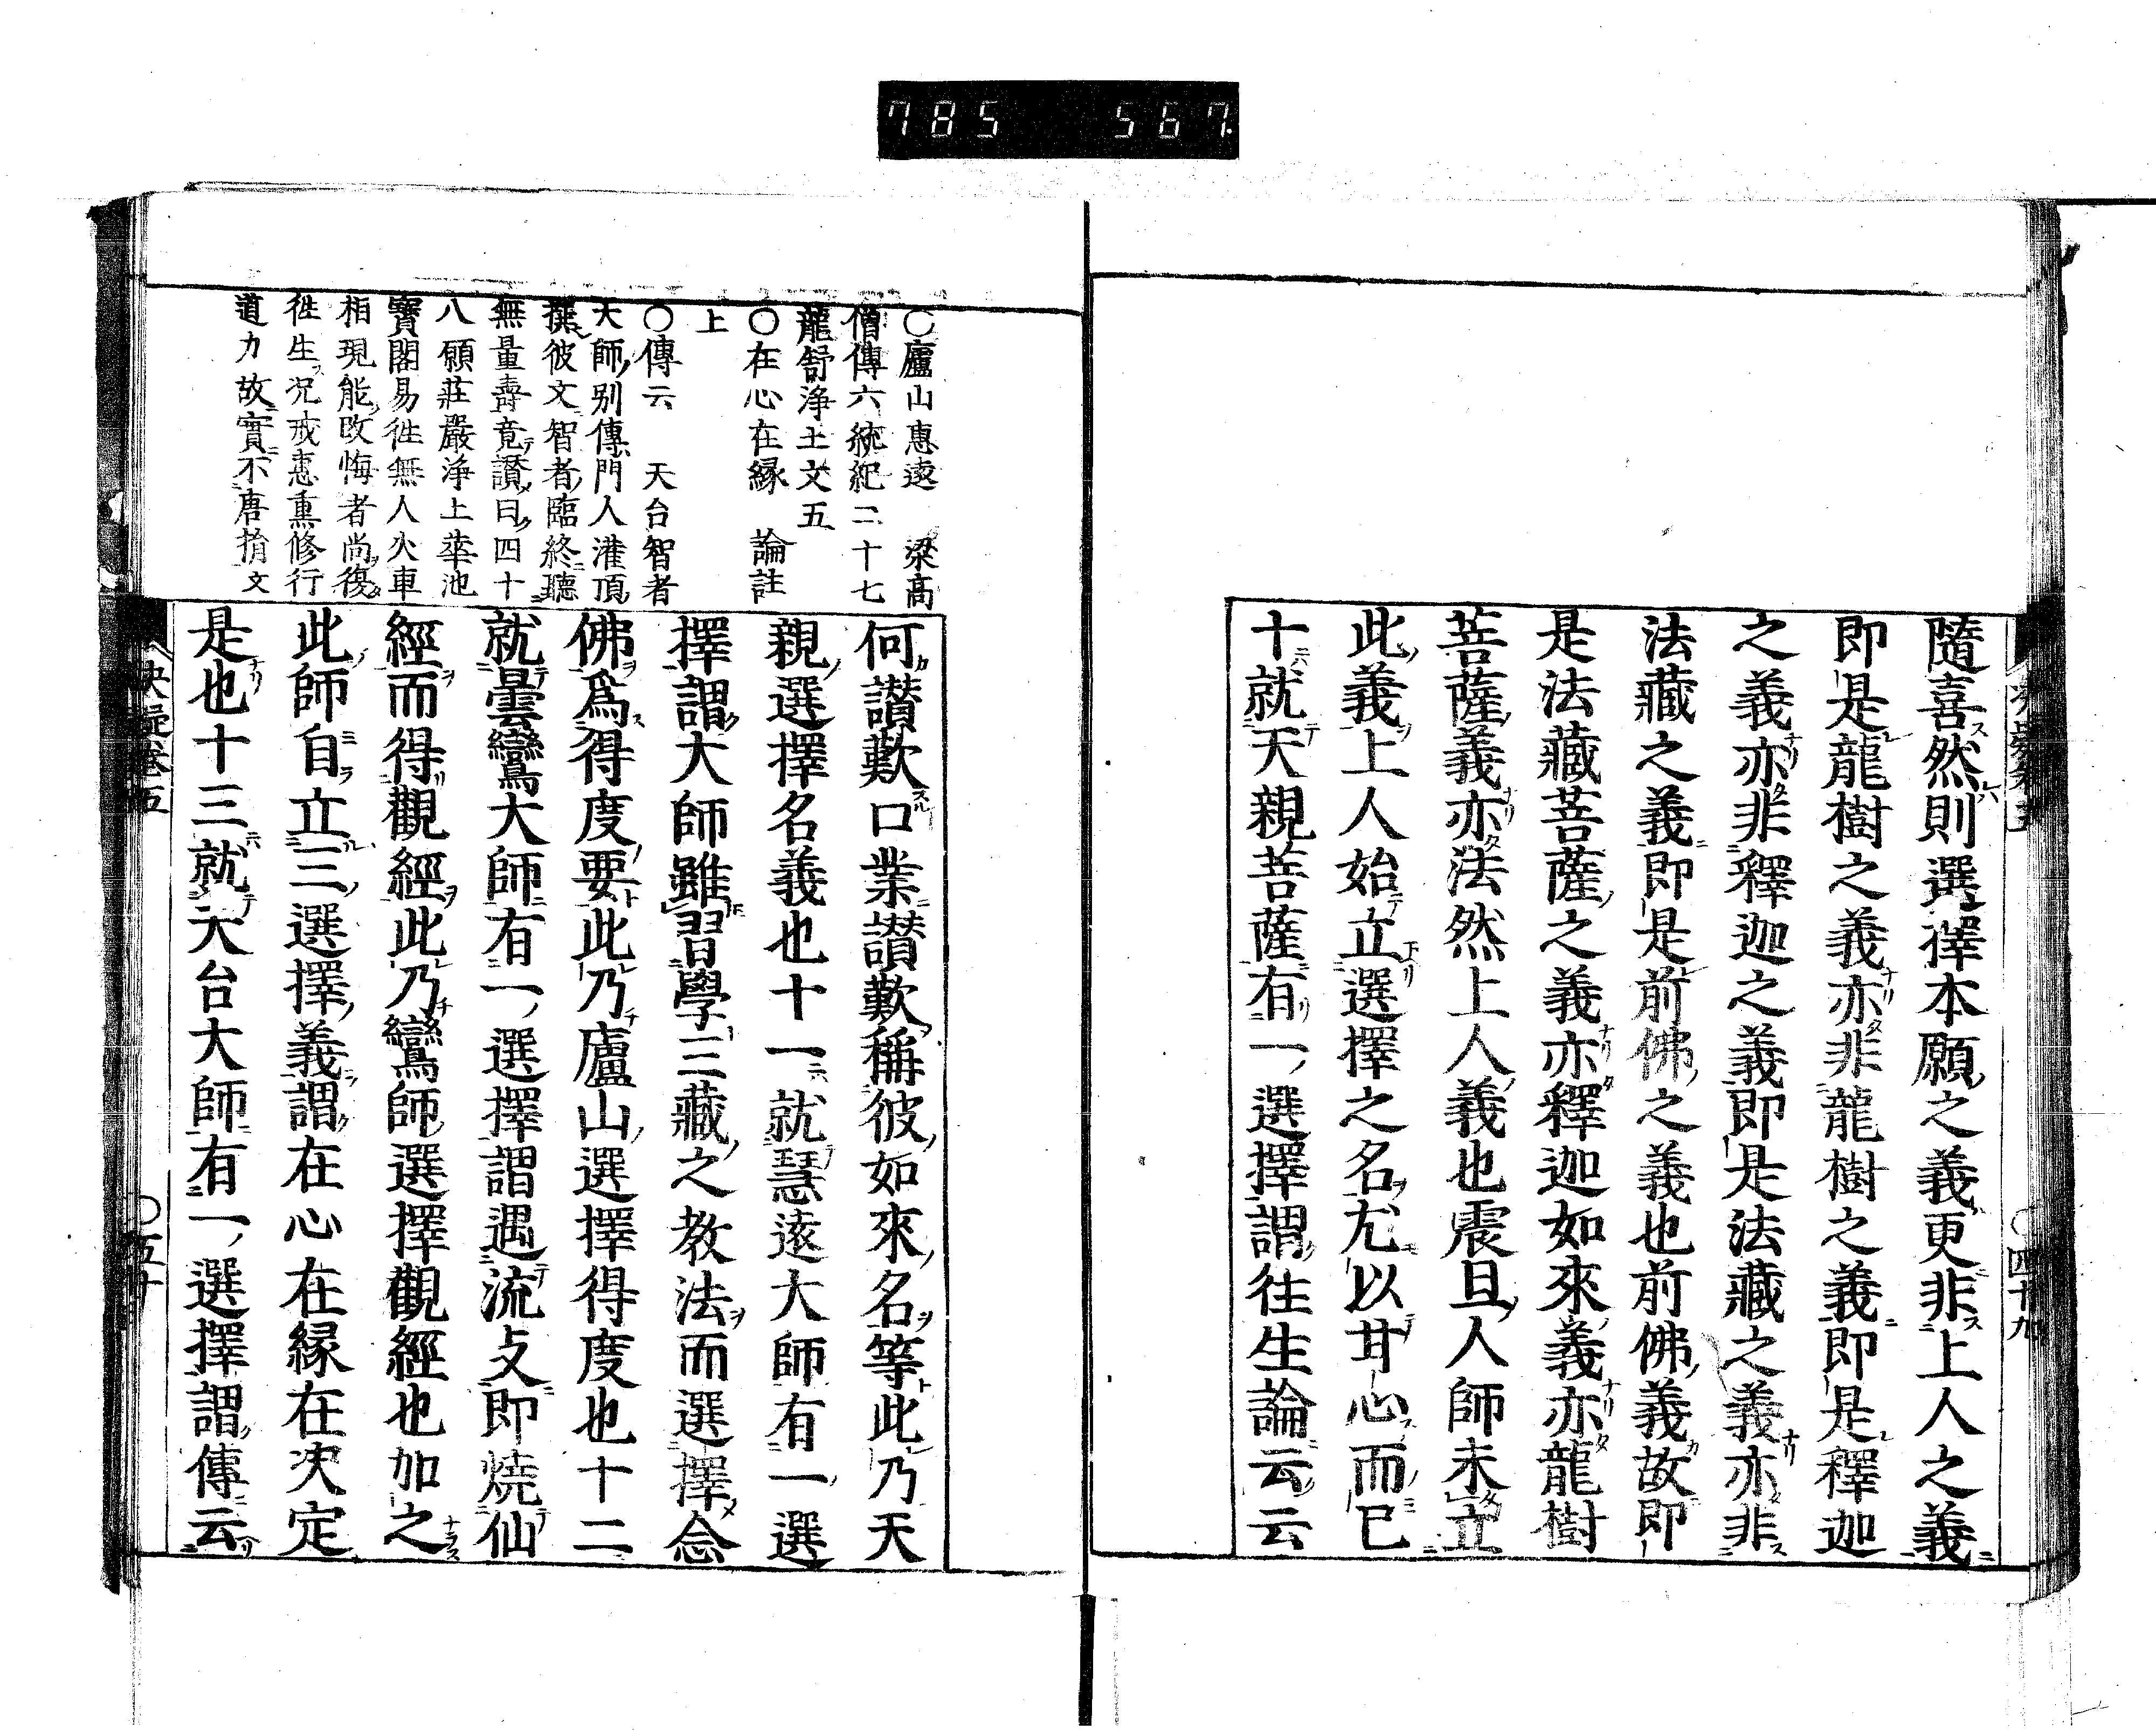 785 567.
隨喜然則選擇本願之義更非上人之義
即是龍樹之義亦非龍樹之義即是釋迦
之義亦非釋迦之義即是法藏之義亦非
法藏之義即是前佛之義也前佛義故即
是法藏菩薩之義亦釋迦如來義亦龍樹
菩薩義亦法然上人義也震旦人師未立
此義上人始立選擇之名尤以甘心而已
十就天親菩薩有一選擇謂往生論云云
四十九
○廬山惠遠 梁高
僧傳六統紀二十七
龍舒淨土文五
○在心在縁 論註
上
○傳云 天台智者
大師別傳門人灌頂
撰彼文智者臨終聽
無量壽竟讃曰四十
八願莊嚴淨土華池
寶閣易徃無人火車
相現能改悔者尚復
徃生况戒恵熏修行
道力故實不唐捐文
何讃歎口業讃歎稱彼如來名等此乃天
親選擇名義也十一就慧遠大師有一選
擇謂大師雖習學三藏之教法而選擇念
佛爲得度要此乃廬山選擇得度也十二
就曇鸞大師有一選擇謂遇流支即燒仙
經而得觀經此乃鸞師選擇觀經也加之
此師自立三選擇義謂在心在縁在决定
是也十三就天台大師有一選擇謂傳云
決疑卷五 ○五十